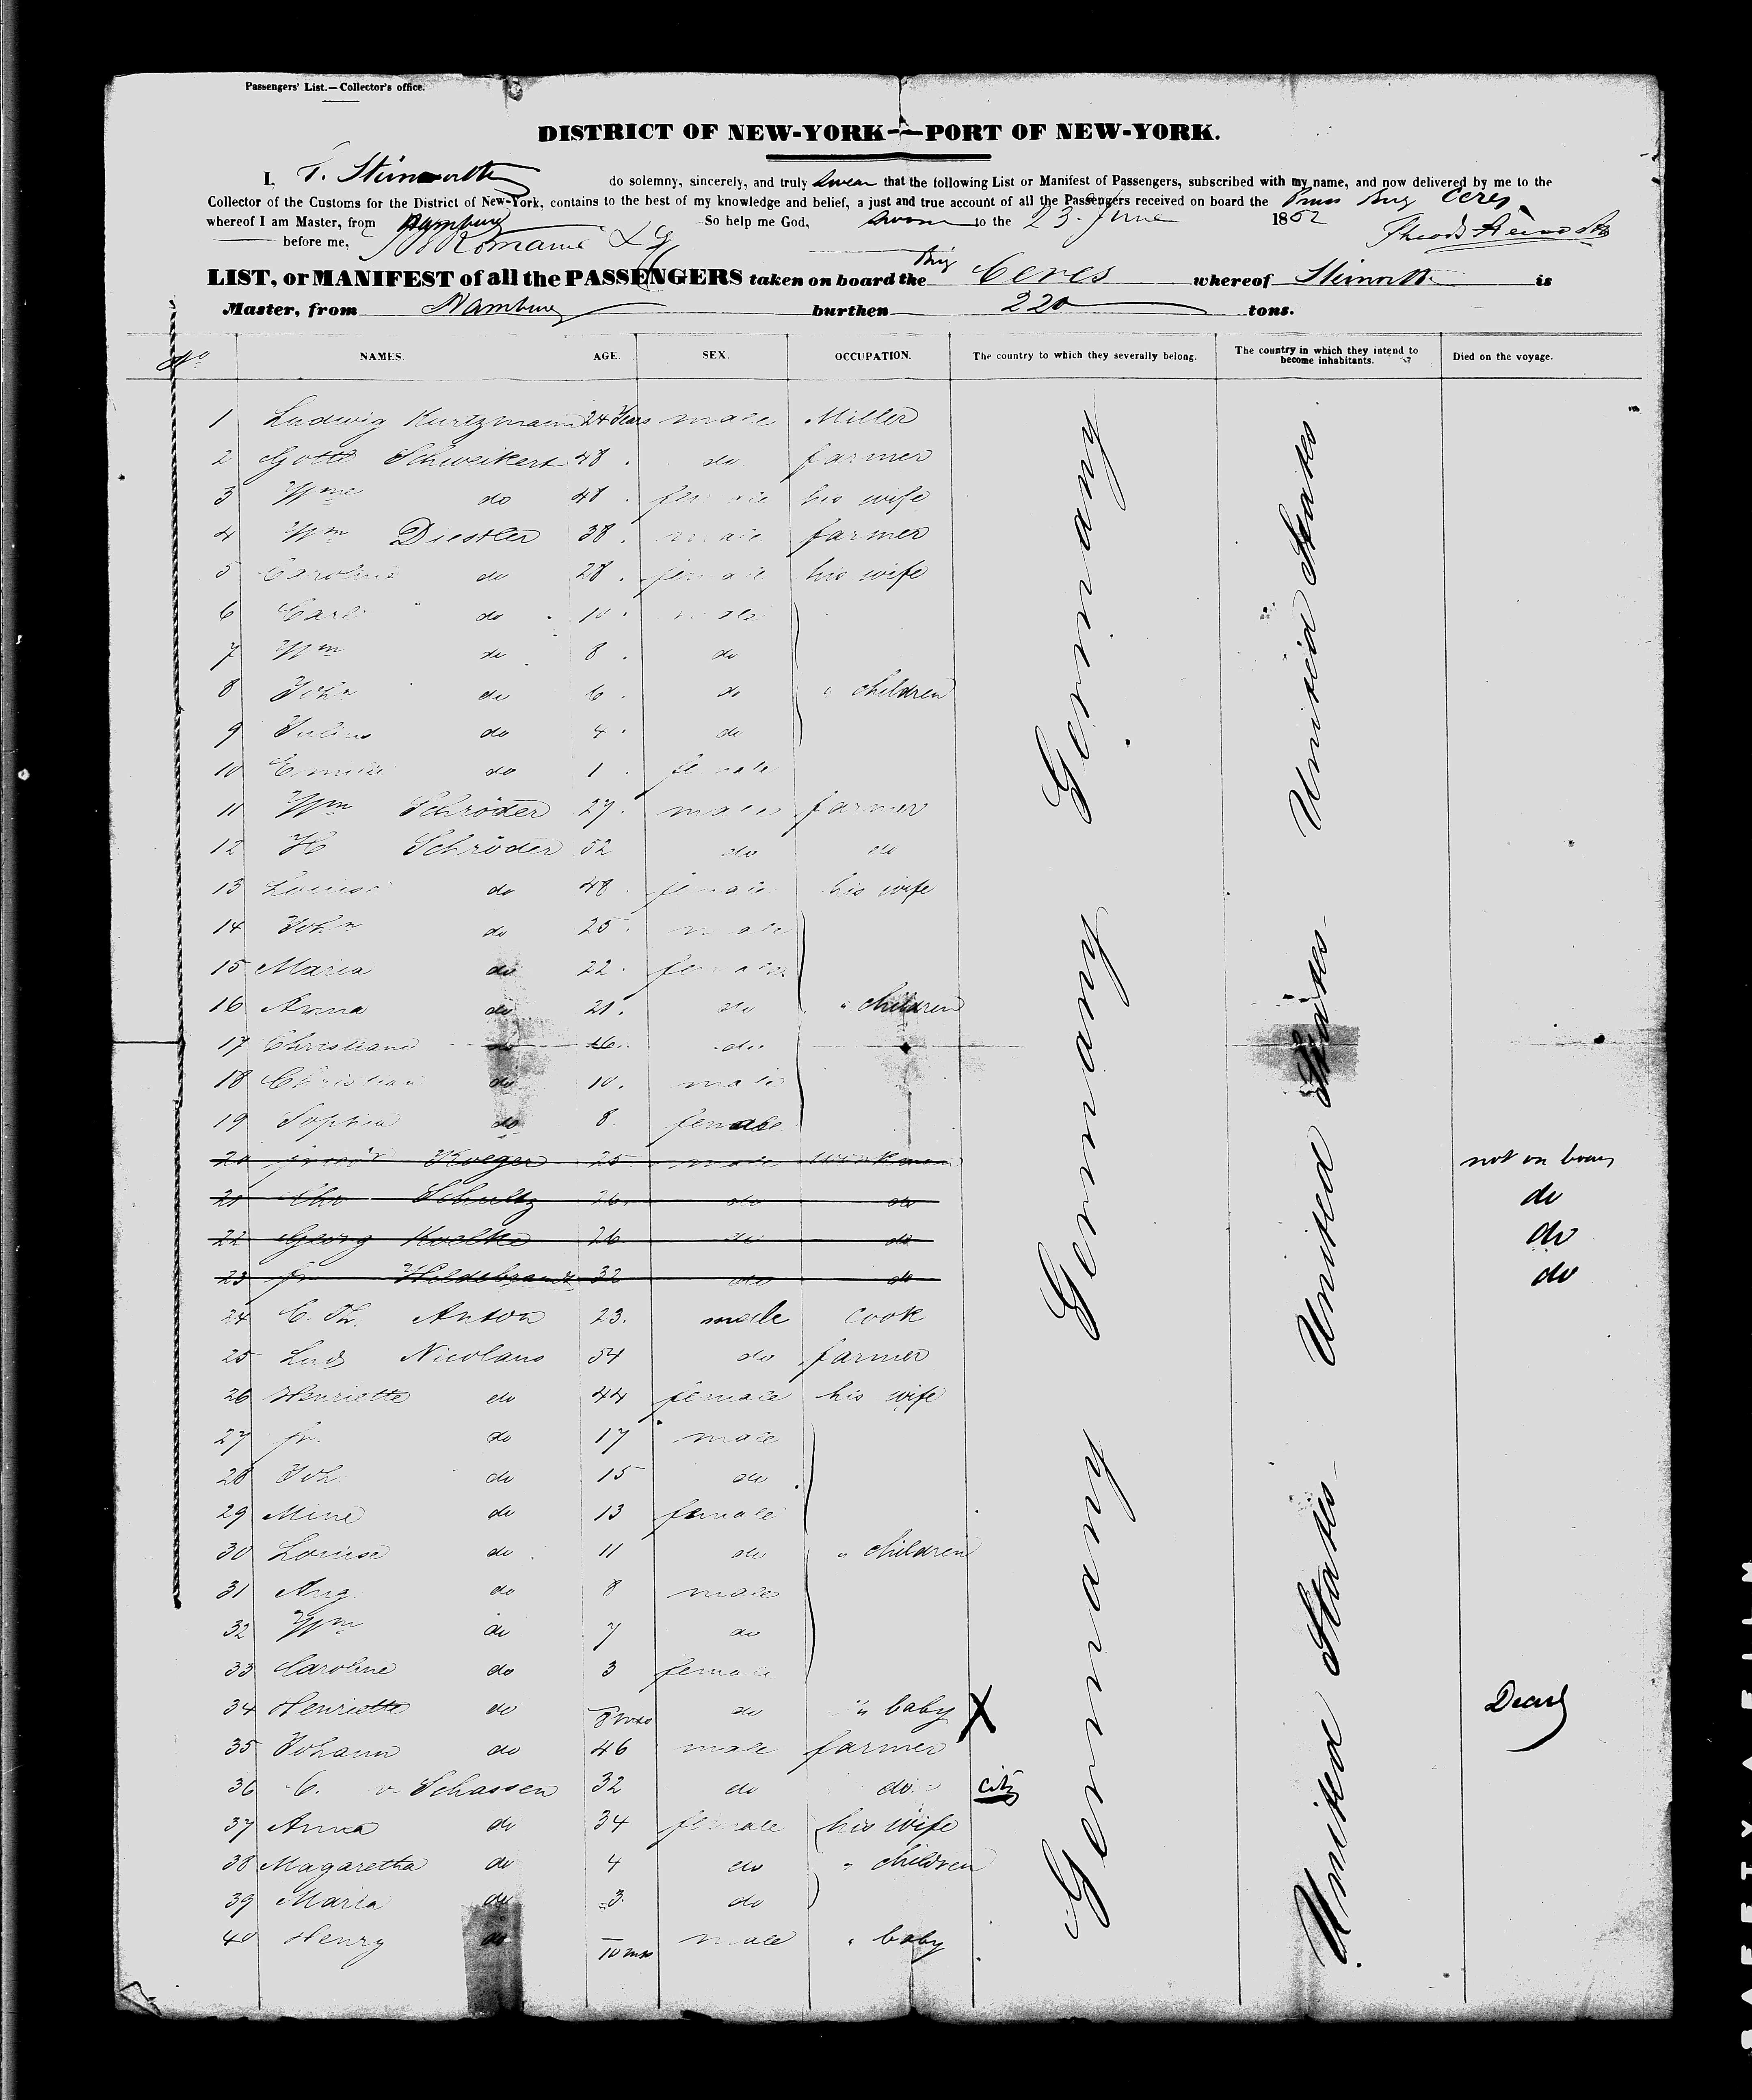 Passengers' List.—Collector's office.
DISTRICT OF NEW-YORK—PORT OF NEW-YORK.
I, T. do solemny, sincerely, and truly swear that the following List or Manifest of Passengers, subscribed with my name, and now delivered by me to the
Collector of the Customs for the District of New-York, contains to the best of my knowledge and belief, a just and true account of all the Passengers received on board the Pruss Brig Ceres
whereof I am Master, from Hamburg So help me God, sworn to the 23. June 1852
before me,
LIST, or MANIFEST of all the PASSENGERS taken on board the Brig Ceres whereof is
Master, from Hamburg burthen 220 tons.
No NAMES. AGE. SEX. OCCUPATION. The country to which they severally belong. The country in which they intend to become inhabitants. Died on the voyage.
1 Ludwig Kurtzmann 24 Years male Miller
2 Gottl Schweikert 48 do farmer
3 Wme do 48 female his wife
4 Wm Diestler 38 male farmer
5 Caroline do 28 female his wife
6 Carl do 10 male
7 Wm do 8 do
8 John do 6 do " children
9 Julius do 4 do
10 Emilie do 1 female
11 Wm Schröder 27 male farmer
12 H Schröder 52 do do
13 Louise do 48 female his wife
14 John do 25 male
15 Maria do 22 female
16 Anna do 21 do " children
17 Christiane do 16 do
18 Christian do 10 male
19 Sophia do 8 female
20 Kroeger 25 male workman not on board
21 Chr Schultz 26 do do do
22 Georg Koelke 26 do do do
23 Fr Hildebrandt 32 do do do
24 C. Th. Anton 23. male cook
25 Ludg Nicolaus 54 do farmer
26 Henriette do 44 female his wife
27 Fr. do 17 male
28 Joh. do 15 do
29 Mine do 13 female
30 Louise do 11 do " children
31 Aug do 8 male
32 Wm do 7 do
33 Caroline do 3 female
34 Henriette do 8 mos do " baby X Dead
35 Johann do 46 male farmer
36 C. v. Schassen 32 do do city
37 Anna do 34 female his wife
38 Magaretha do 4 do " children
39 Maria do 3 do
40 Henry do 10 mos male " baby
Germany
Germany
Germany
United States
United States
United States